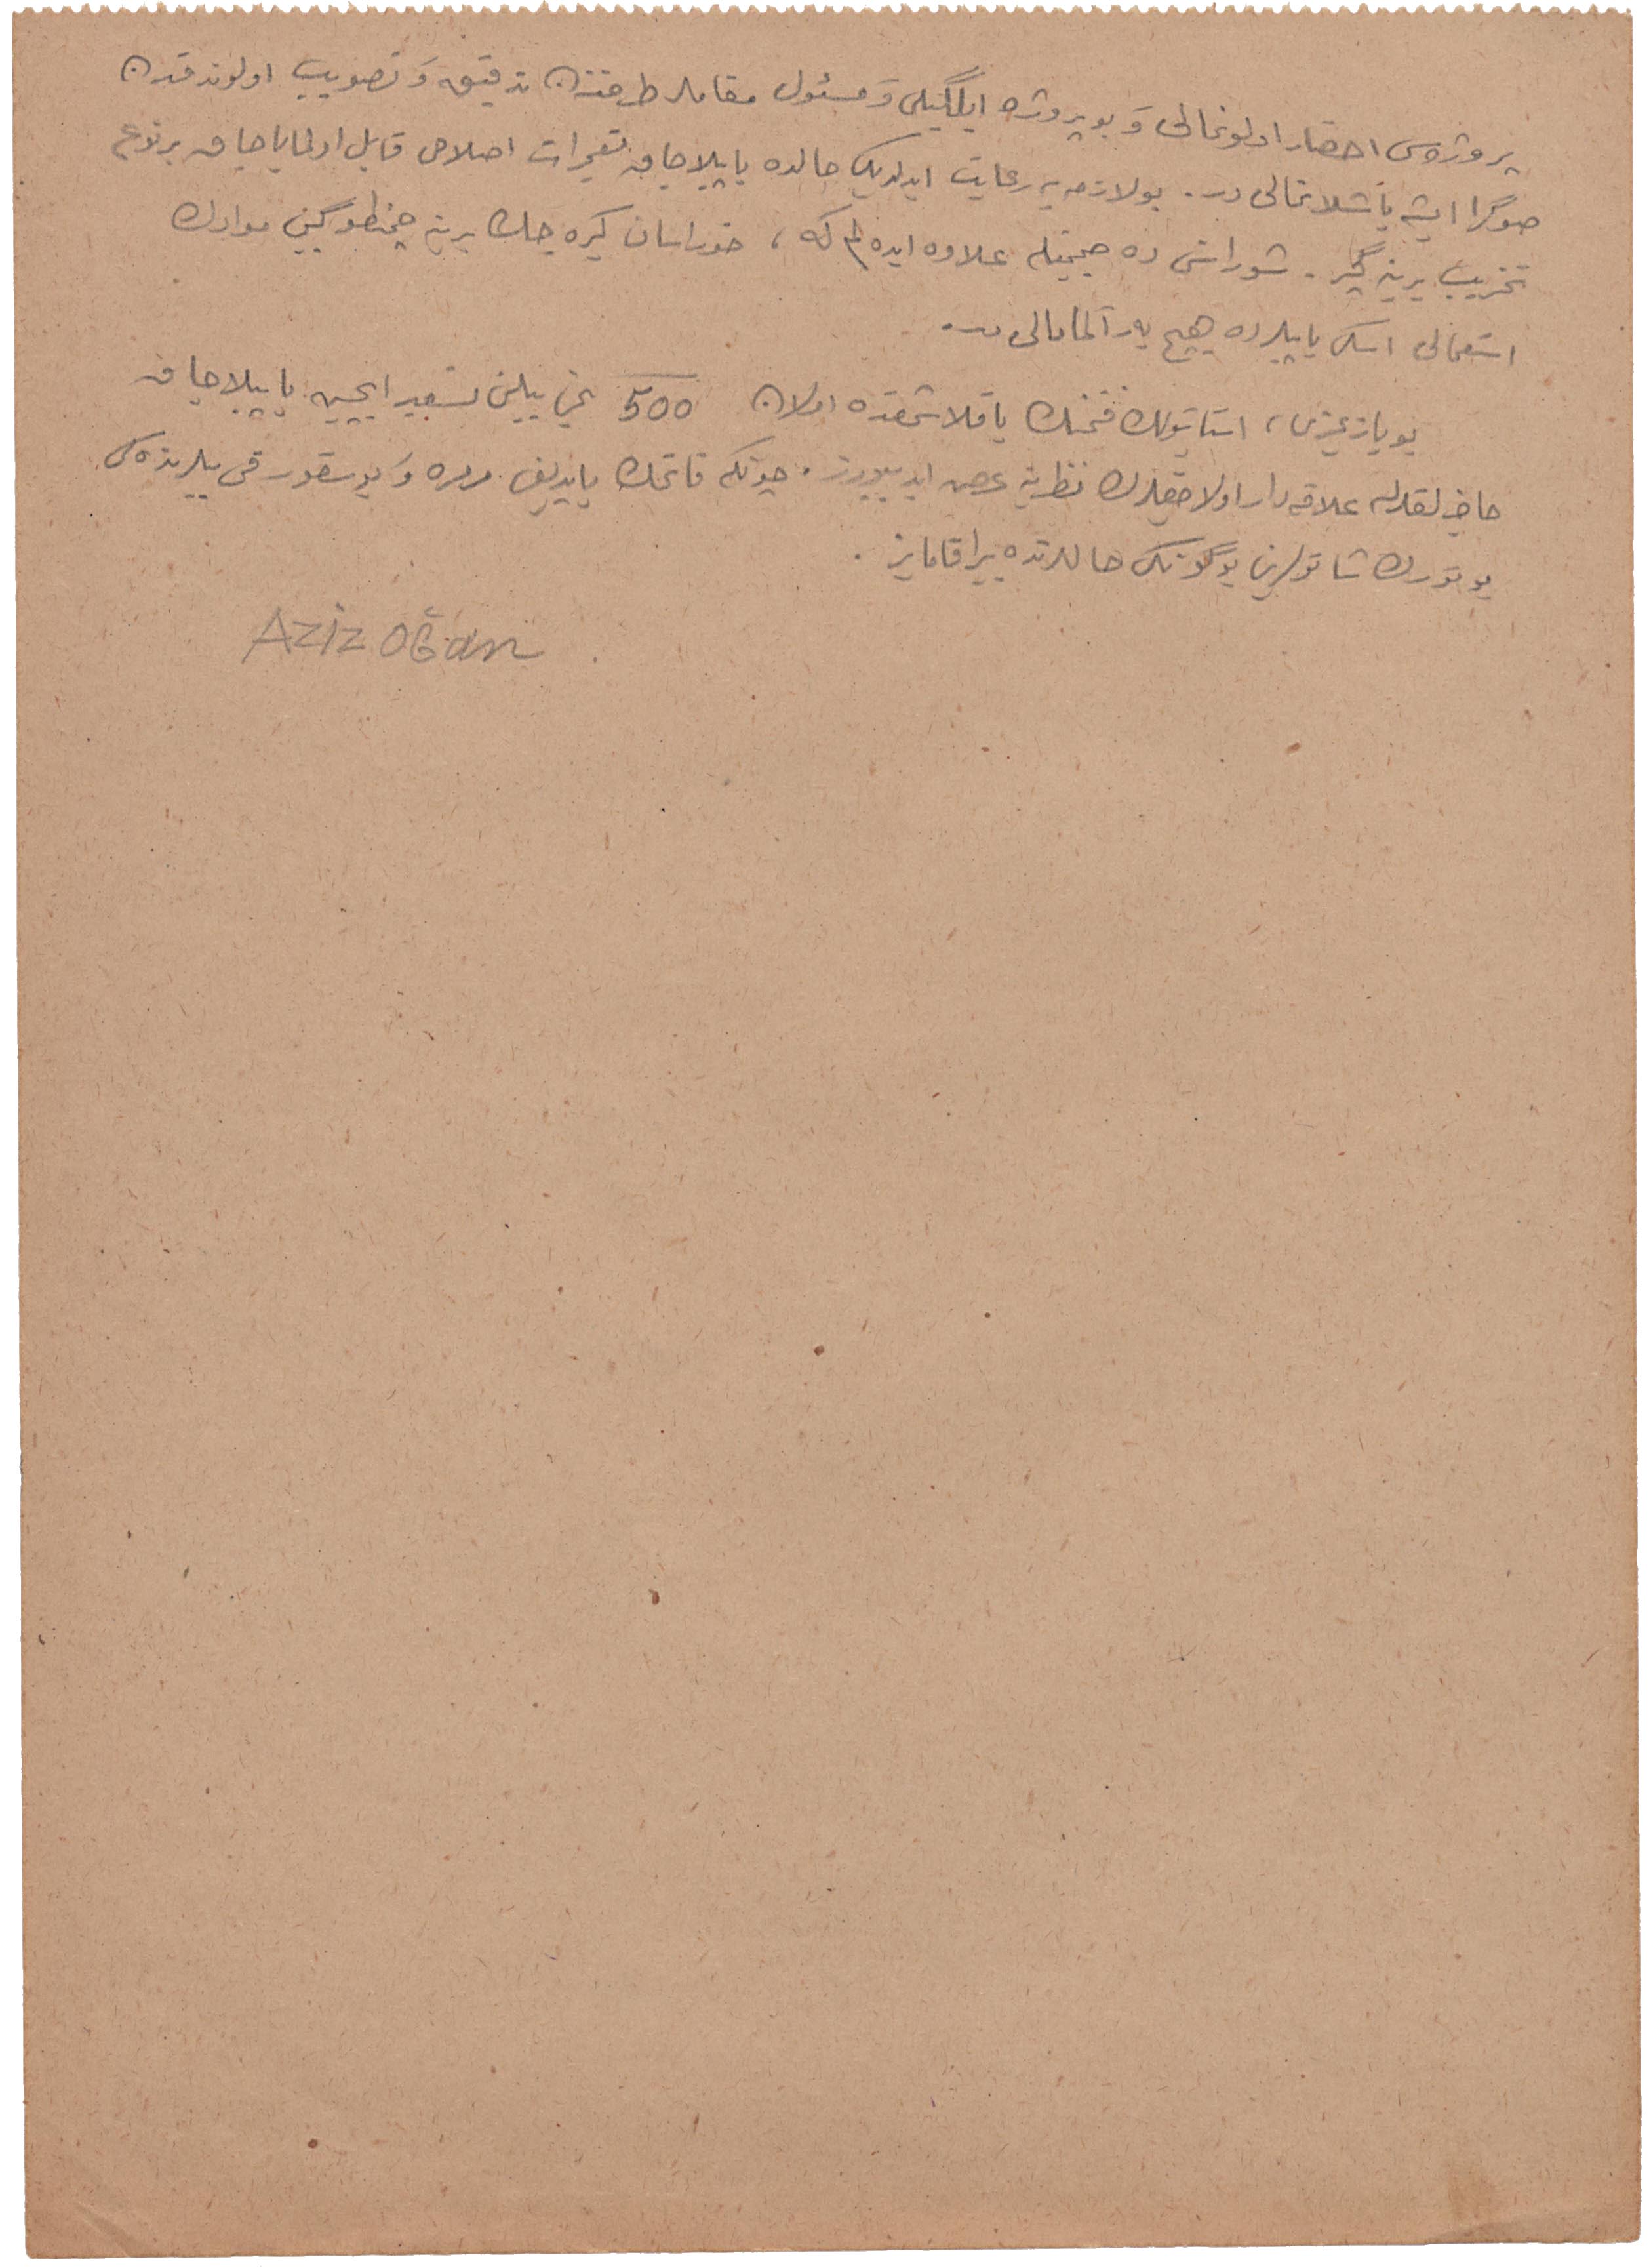 پروژه‌سی احضار اولونمالی و بو پروژه ایلگیلی و مسئول مقاملر طرفندن تدقیق و تصویب اولوندقدن
صوڭرا ایشه باشلانمالی در. بو لازمه‌یه رعایت ایدلمدیکی حالده یاپیلاجاق تعمیرات اصلاحی قابل اولمایاجاق بر نوع
تخریب یرینه گچر. شوراسنی ده صمیمیتله علاوه ایده‌لم که، خوراسان کیره‌جلك یرینه چیمنطو گبی موادك
استعمالی اسکی یاپیلرده هیچ یر آلمامالی در.
بو یازیمزی، استانبولك فتحنك یاقلاشمقده اولان 500 نجی ییلنی تسعید ایچین یاپیلاجاق
حاضرلقلرله علاقه‌دار اولاجقلرك نظرینه عرض ایدییورز. چونکه فاتحك یاپدیغی و بو سقور فی ییلرنده کی
بو تورك شاتولرینی بوگونکی حاللرنده بیراقامایز.
Aziz Oğan